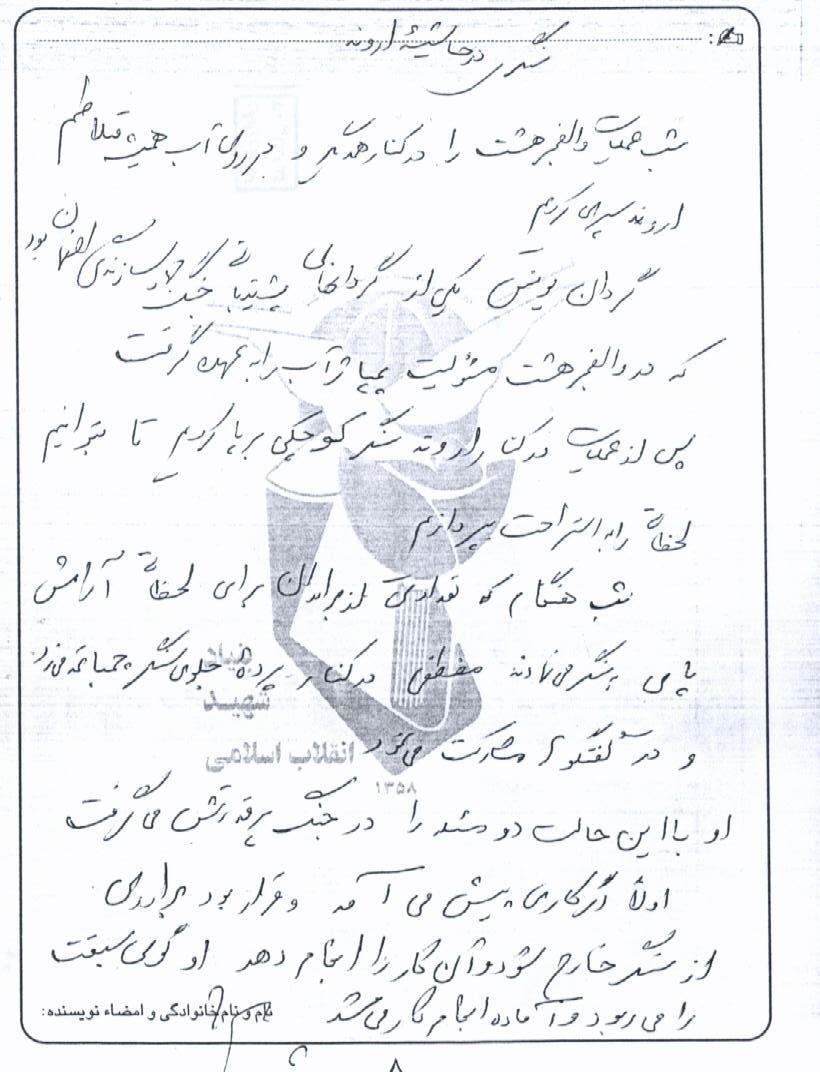 سنگری در حاشیهٔ اروند
شب عملیات والفجر هشت را در کنار همدیگر و بر روی آب همیشه متلاطم
اروند سپری کردیم
گردان یونس یکی از گردانهای پشتیبانی جنگ جهاد سازندگی اصفهان بود
که در والفجر هشت مسئولیت پمپاژ آب را به عهده گرفت
پس از عملیات در کنار اروند سنگر کوچکی برپا کردیم تا بتوانیم
لحظاتی را به استراحت بپردازیم
شب هنگام که تعدادی از برادران برای لحظاتی آرامش
پا می به سنگر می نهادند مصطفی در کنار پرده جلوی سنگر چمباتمه می زد
و در گفتگو مشارکت می نمود
او با این حالت دو مسئله را در چنگ پرقدرتش می گرفت
اولاً اگر کاری پیش می آمد و قرار بود برادری
از سنگر خارج شود و آن کار را انجام دهد او گوی سبقت
را می ربود و آماده انجام کار می شد
نام و نام خانوادگی و امضاء نویسنده:
۸
بنیاد
شهید
انقلاب اسلامی
۱۳۵۸